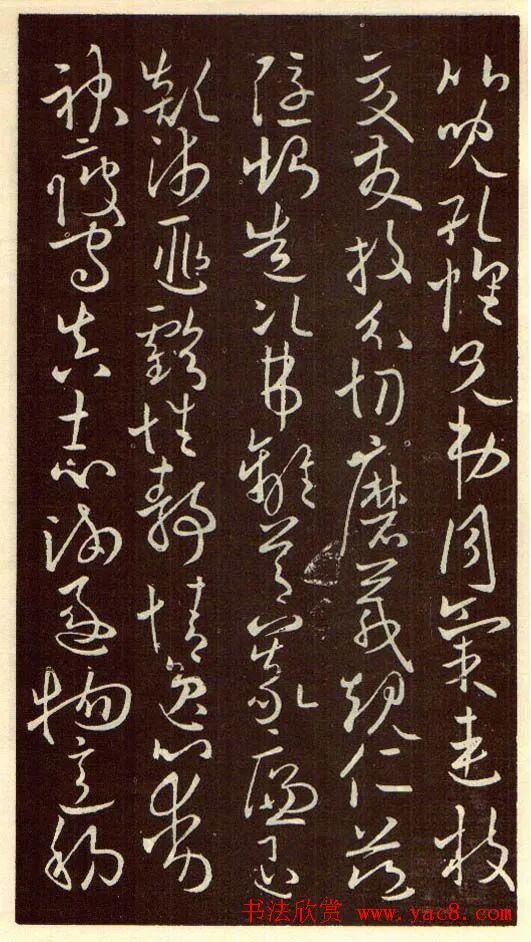 比兒孔懷兄弟同氣連枝
交友投分切磨箴規仁慈
隱惻造次弗離節義廉退
顛沛匪虧性靜情逸心動
神疲守真志滿逐物意移
书法欣赏 www.yac8.com